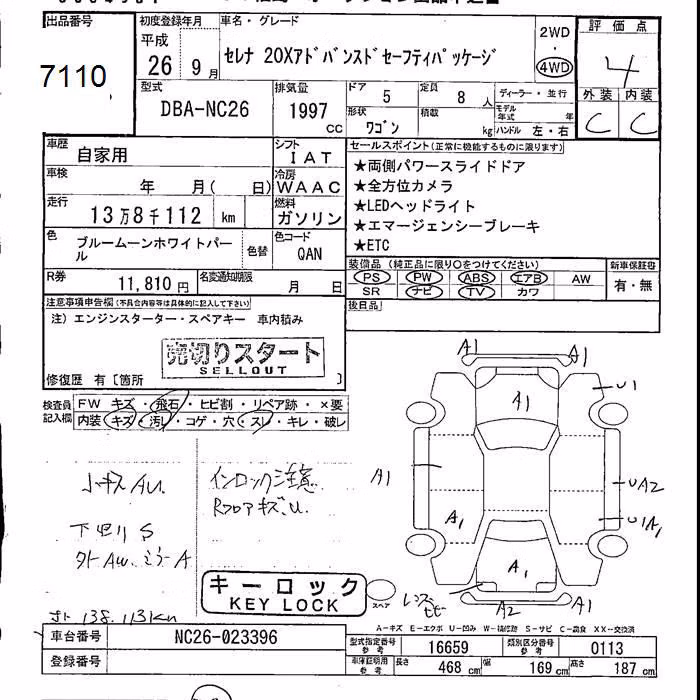 出品番号
7110
初度登録年月
平成
26 9月
車名・グレード
セレナ 20Xアドバンスドセーフティパッケージ
2WD
・
4WD
評価点
4
外装 内装
C C
型式
DBA-NC26
排気量
1997
CC
ドア
5
定員
8 人
形状
ワゴン
積載
kg
ディーラー・並行
モデル年式 年
ハンドル 左・右
車歴
自家用
シフト
IAT
車検
年 月( 日)
冷房
WAAC
走行
13万8千112 km
燃料
ガソリン
色
ブルームーンホワイトパール
色替
色コード
QAN
R券
11,810 円
名変通知期限
月 日
セールスポイント(正常に機能するものに限ります)
★両側パワースライドドア
★全方位カメラ
★LEDヘッドライト
★エマージェンシーブレーキ
★ETC
装備品 (純正品に限り○をつけてください)
新車保証書
PS PW ABS エアB AW
SR ナビ TV カワ
有・無
後日品
注意事項申告欄(不具合内容等は具体的に記入して下さい)
注) エンジンスターター・スペアキー 車内積み
売切りスタート
SELLOUT
修復歴 有[箇所 ]
検査員記入欄
FW キズ・飛石・ヒビ割・リペア跡・×要
内装 キズ・汚れ・コゲ・穴・スレ・キレ・破レ
小キズ AU.
下回り S
外 AW.ミラーA
インロック注意
Rフロアキズ.U.
キーロック
KEY LOCK
スペア
138.113km
A1
A1
A1
U1
A1
UA2
A1
U1A1
A1
A2
A1
A-キズ E-エクボ U-凹み W-補修跡 S-サビ C-腐食 XX-交換済
車台番号
NC26-023396
登録番号
型式指定番号
参考
16659
類別区分番号
参考
0113
車庫証明用
参考
長さ
468 cm
幅
169 cm
高さ
187 cm